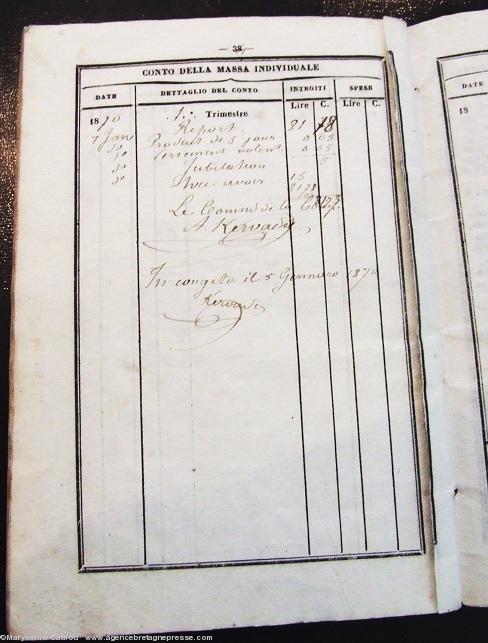 — 38 —
CONTO DELLA MASSA INDIVIDUALE
DATE DETTAGLIO DEL CONTO INTROITI SPESE
Lire C. Lire C.
1870 1. Trimestre
1 Jan Report 81 18
do Produit de 5 jour 0 65
do Versement volont.
do
do avoir 15
81 78
Le Comm de la
A Kervadec
In congedo il 5 Gennaro 1870
Kervadec
DATE
18
©Maryvonne Cadiou / www.agencebretagnepresse.com